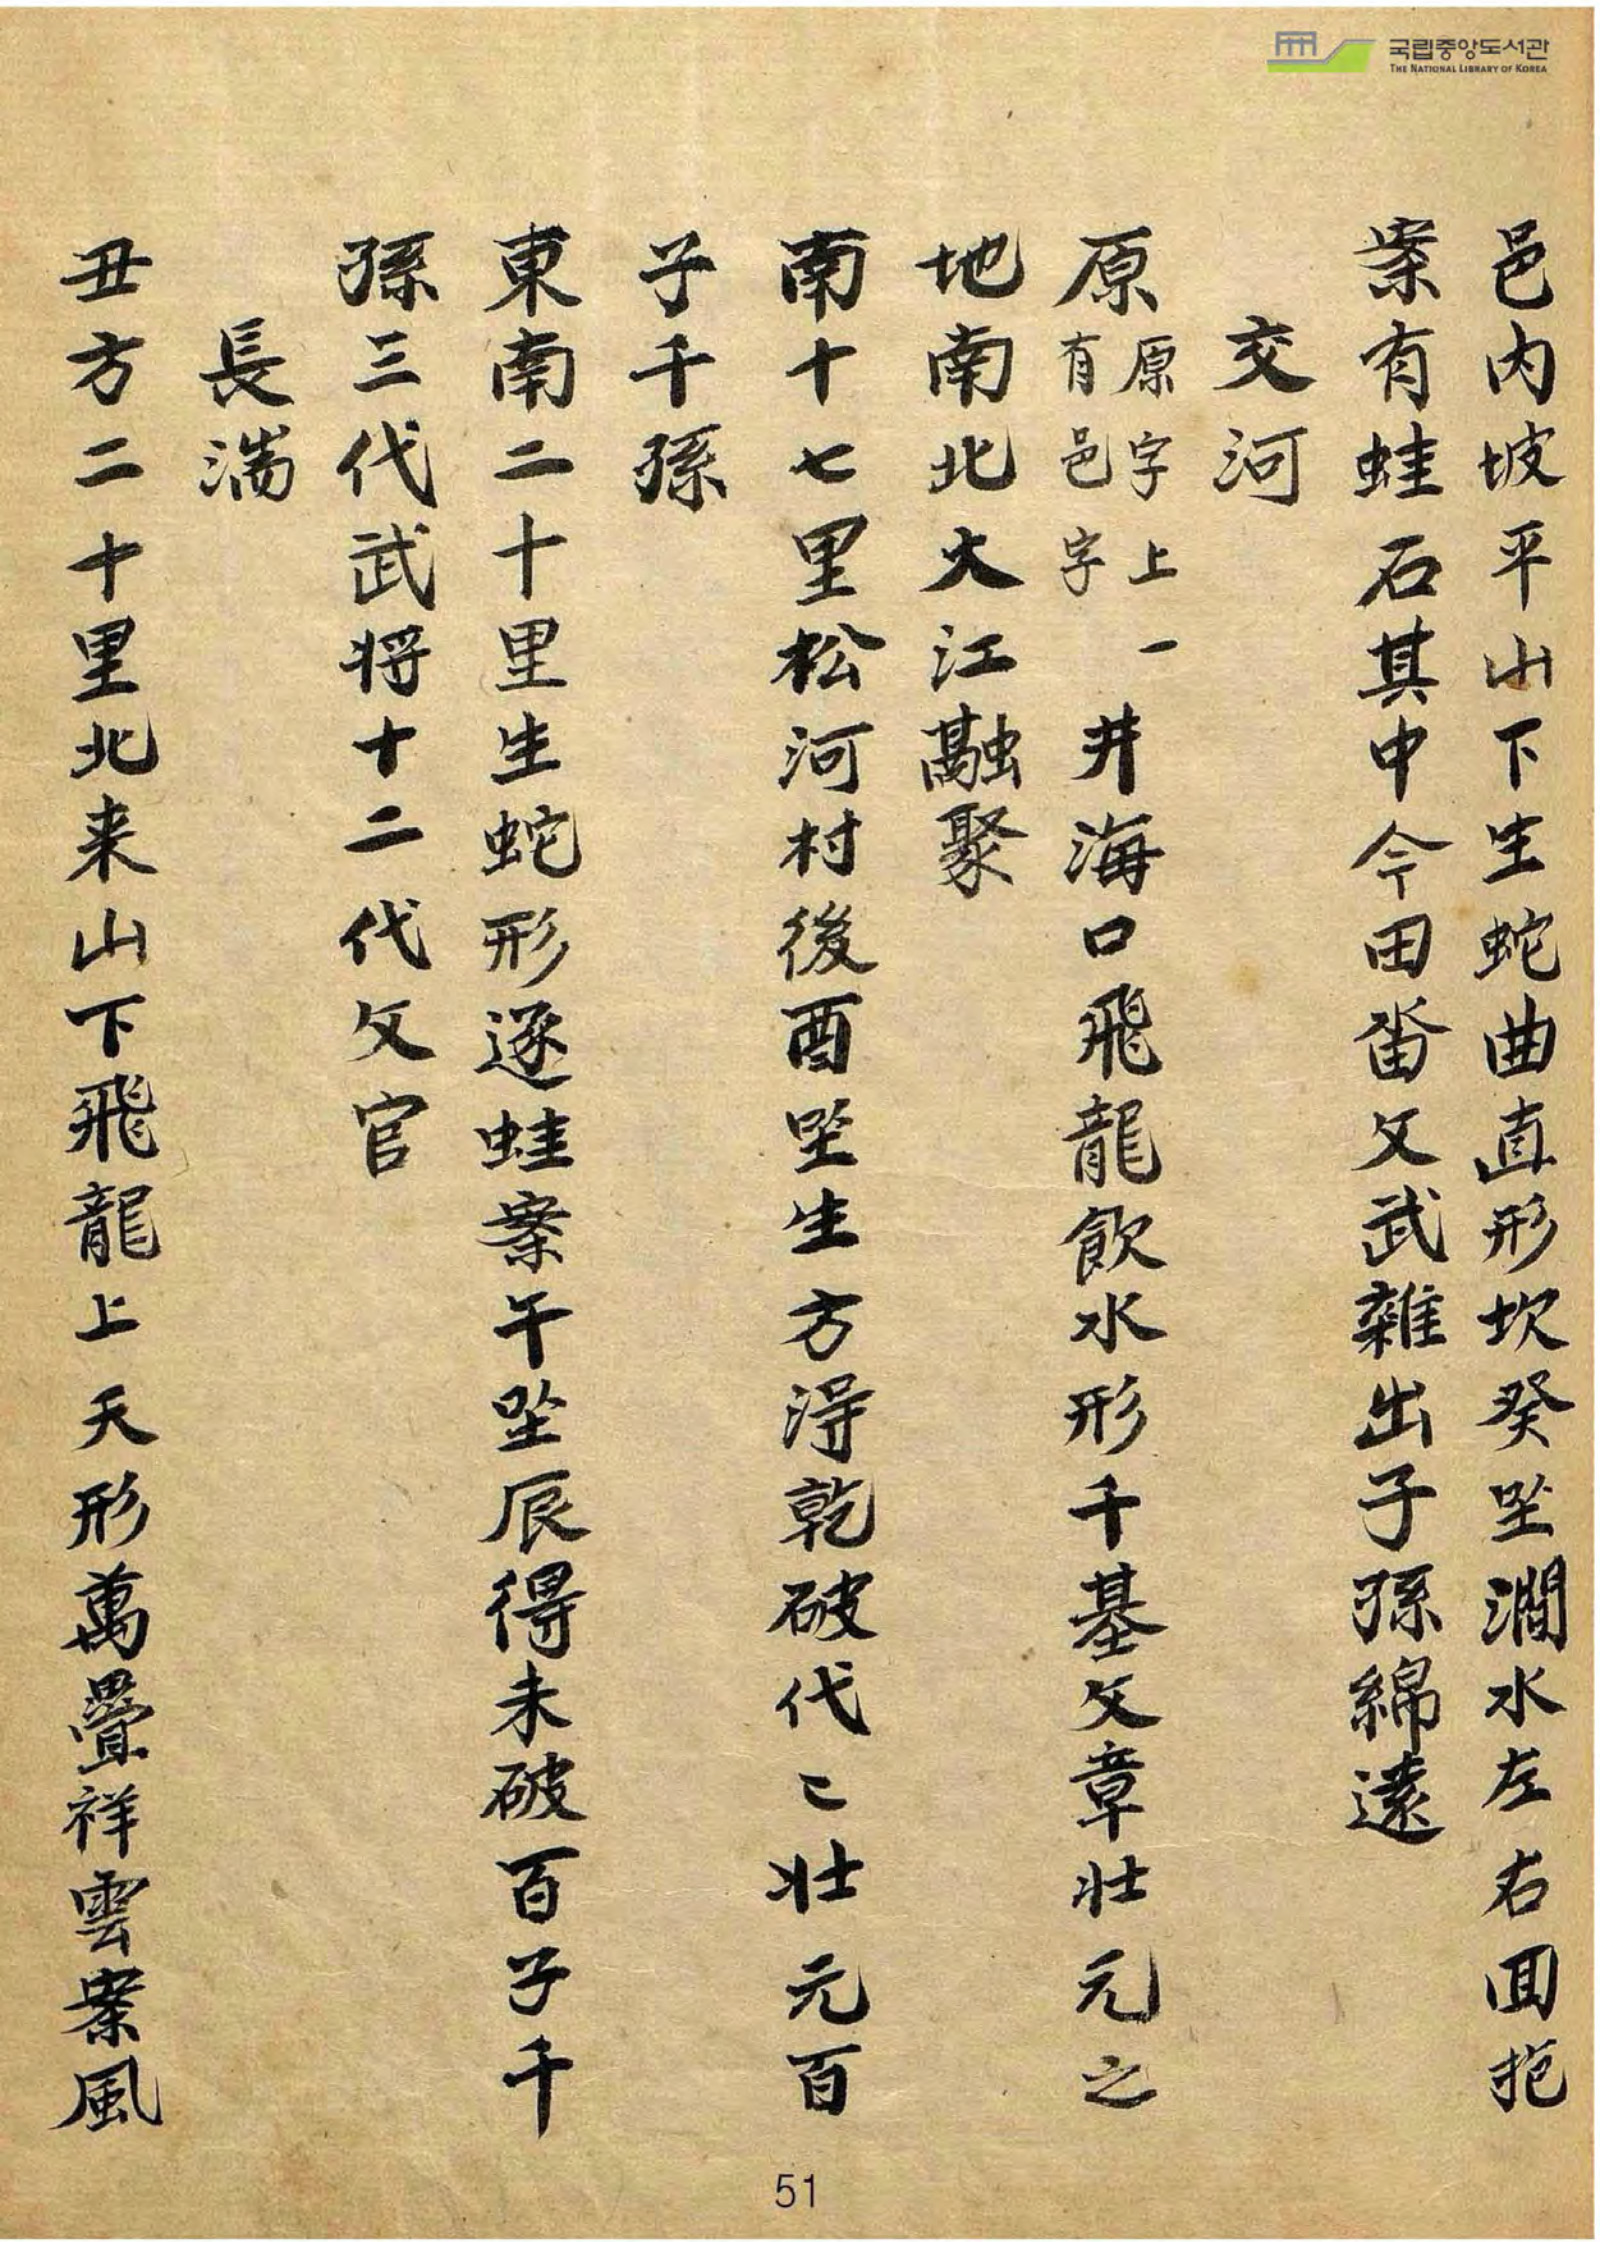 국립중앙도서관
THE NATIONAL LIBRARY OF KOREA
邑内坡平山下生蛇曲直形坎癸坐澗水左右回抱
案有蛙石其中今田畓文武雜出子孫綿遠
交河
原原字上一有邑字井海口飛龍飮水形千基文章壯元之
地南北大江融聚
南十七里松河村後酉坐生方淂乾破代〻壯元百
子千孫
東南二十里生蛇形逐蛙案午坐辰得未破百子千
孫三代武将十二代文官
長湍
丑方二十里北来山下飛龍上天形萬疊祥雲案風
51